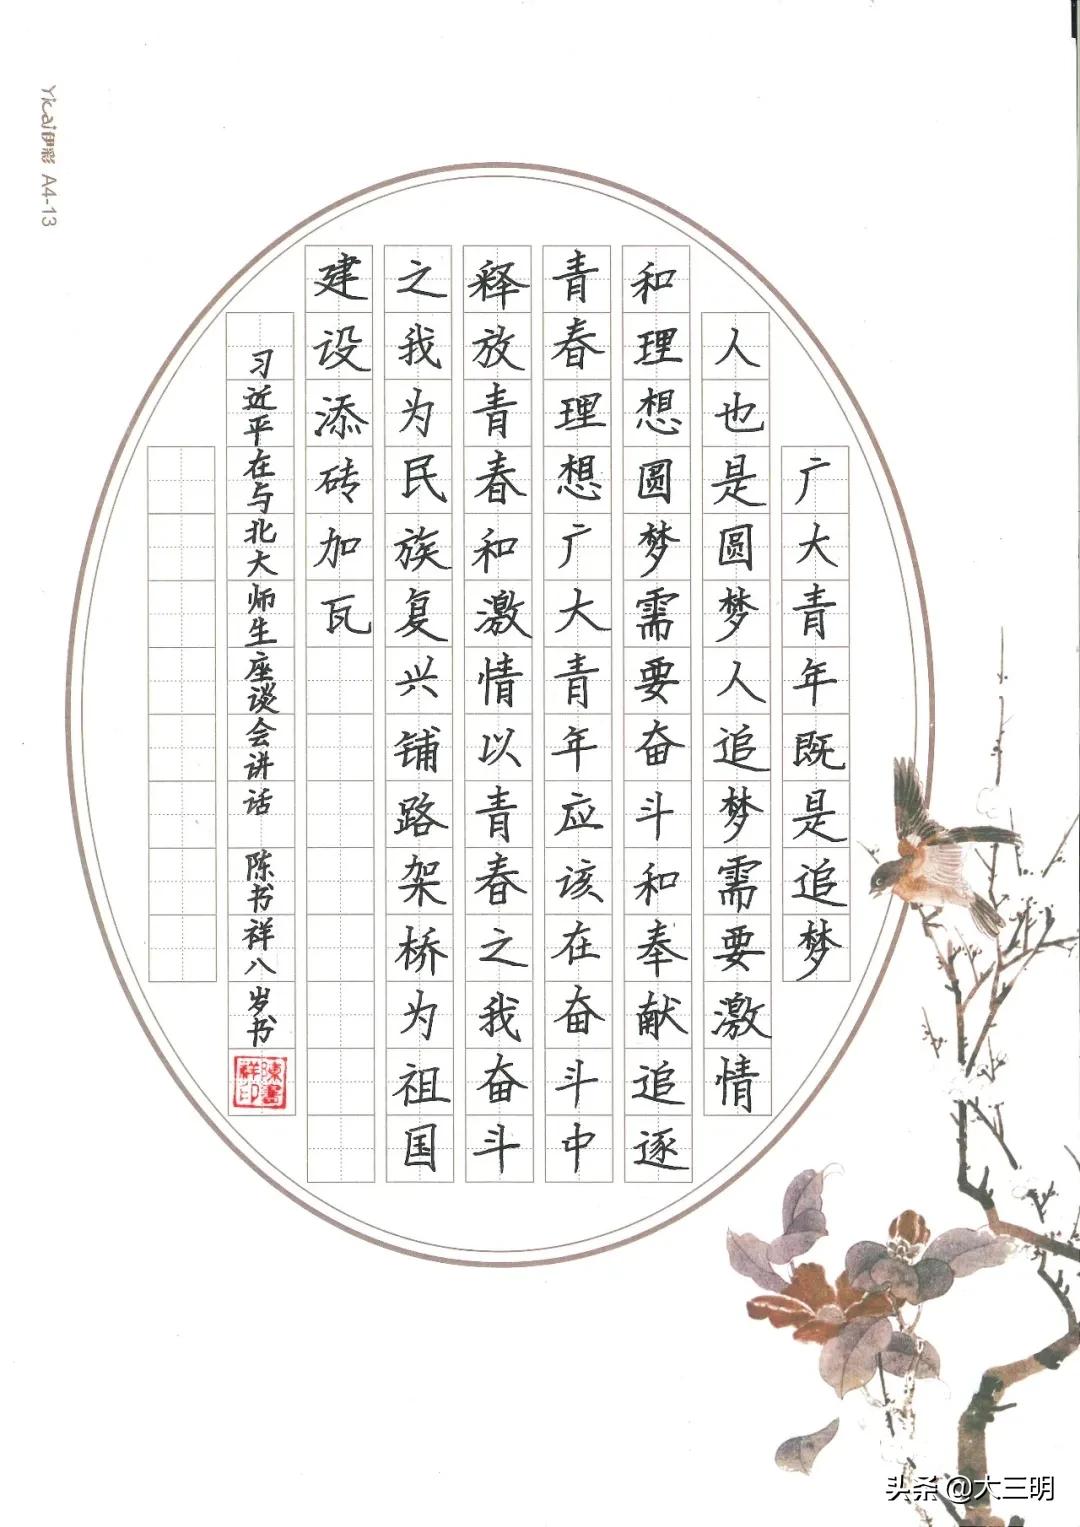 广大青年既是追梦
人也是圆梦人追梦需要激情
和理想圆梦需要奋斗和奉献追逐
青春理想广大青年应该在奋斗中
释放青春和激情以青春之我奋斗
之我为民族复兴铺路架桥为祖国
建设添砖加瓦
习近平在与北大师生座谈会讲话 陈书祥八岁书
陳書祥印
Yicai伊彩 A4-13
头条 @大三明